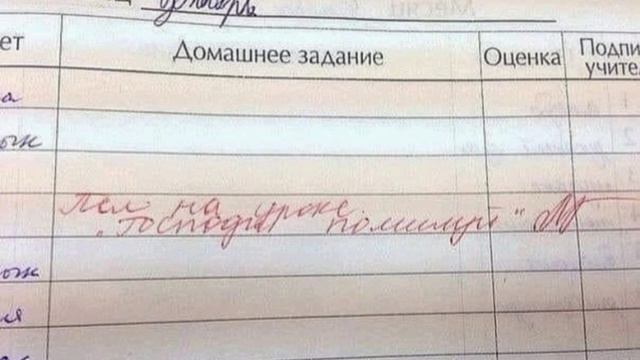 ет Домашнее задание Оценка Подпи
учител
а
Пел на уроке
„Господи помилуй"
ож
ия